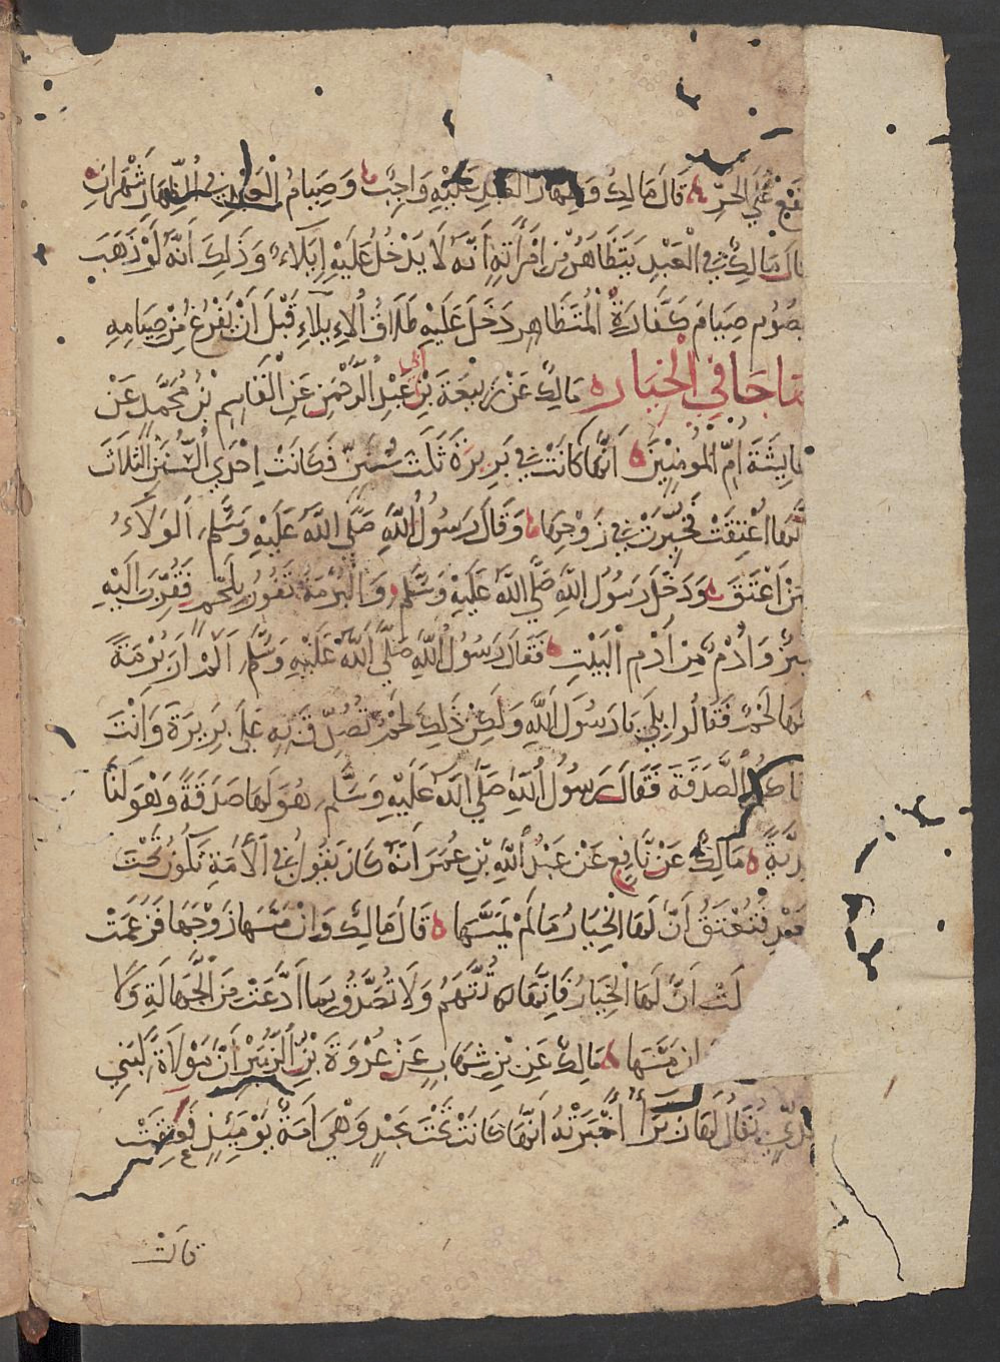 يقع على الحر قال مالك وظهار العبد عليه واجب وصيام العبد في الظهار شهران
قال مالك في العبد يتظاهر من امرأته انه لا يدخل عليه إيلاء وذلك انه لو ذهب
يصوم صيام كفارة المتظاهر دخل عليه طلاق الإيلاء قبل أن يفرغ من صيامه
ما جا في الخيار مالك عن ربيعة بن أبي عبد الرحمن عن القاسم بن محمد عن
عايشة ام المومنين انها كانت في بريرة ثلث سنن فكانت احدى السنن الثلاث
انها اعتقت فخيرت في زوجها وقال رسول الله صلى الله عليه وسلم الولاء
لمن اعتق ودخل رسول الله صلى الله عليه وسلم والبرمة تفور بلحم فقرب اليه
خبز وادم من ادم البيت فقال رسول الله صلى الله عليه وسلم الم ار برمة
فيها لحم فقالوا بلى يا رسول الله ولكن ذلك لحم تصدق به على بريرة وانت
لا تاكل الصدقة فقال رسول الله صلى الله عليه وسلم هو لها صدقة وهو لنا
هدية مالك عن نافع عن عبد الله بن عمر انه كان يقول في الأمة تكون تحت
العبد فتعتق أن لها الخيار ما لم يمسها قال مالك وان مسها زوجها فزعمت
لت ان لها الخيار فانها تتهم ولا تصدق بما ادعت من الجهالة ولا
ان مسها مالك عن بن شهاب عن عروة بن الزبير أن مولاة لبني
عدي يقال لها زبرا أخبرته انها كانت تحت عبد وهي امة يومئذ فعتقت
قالت